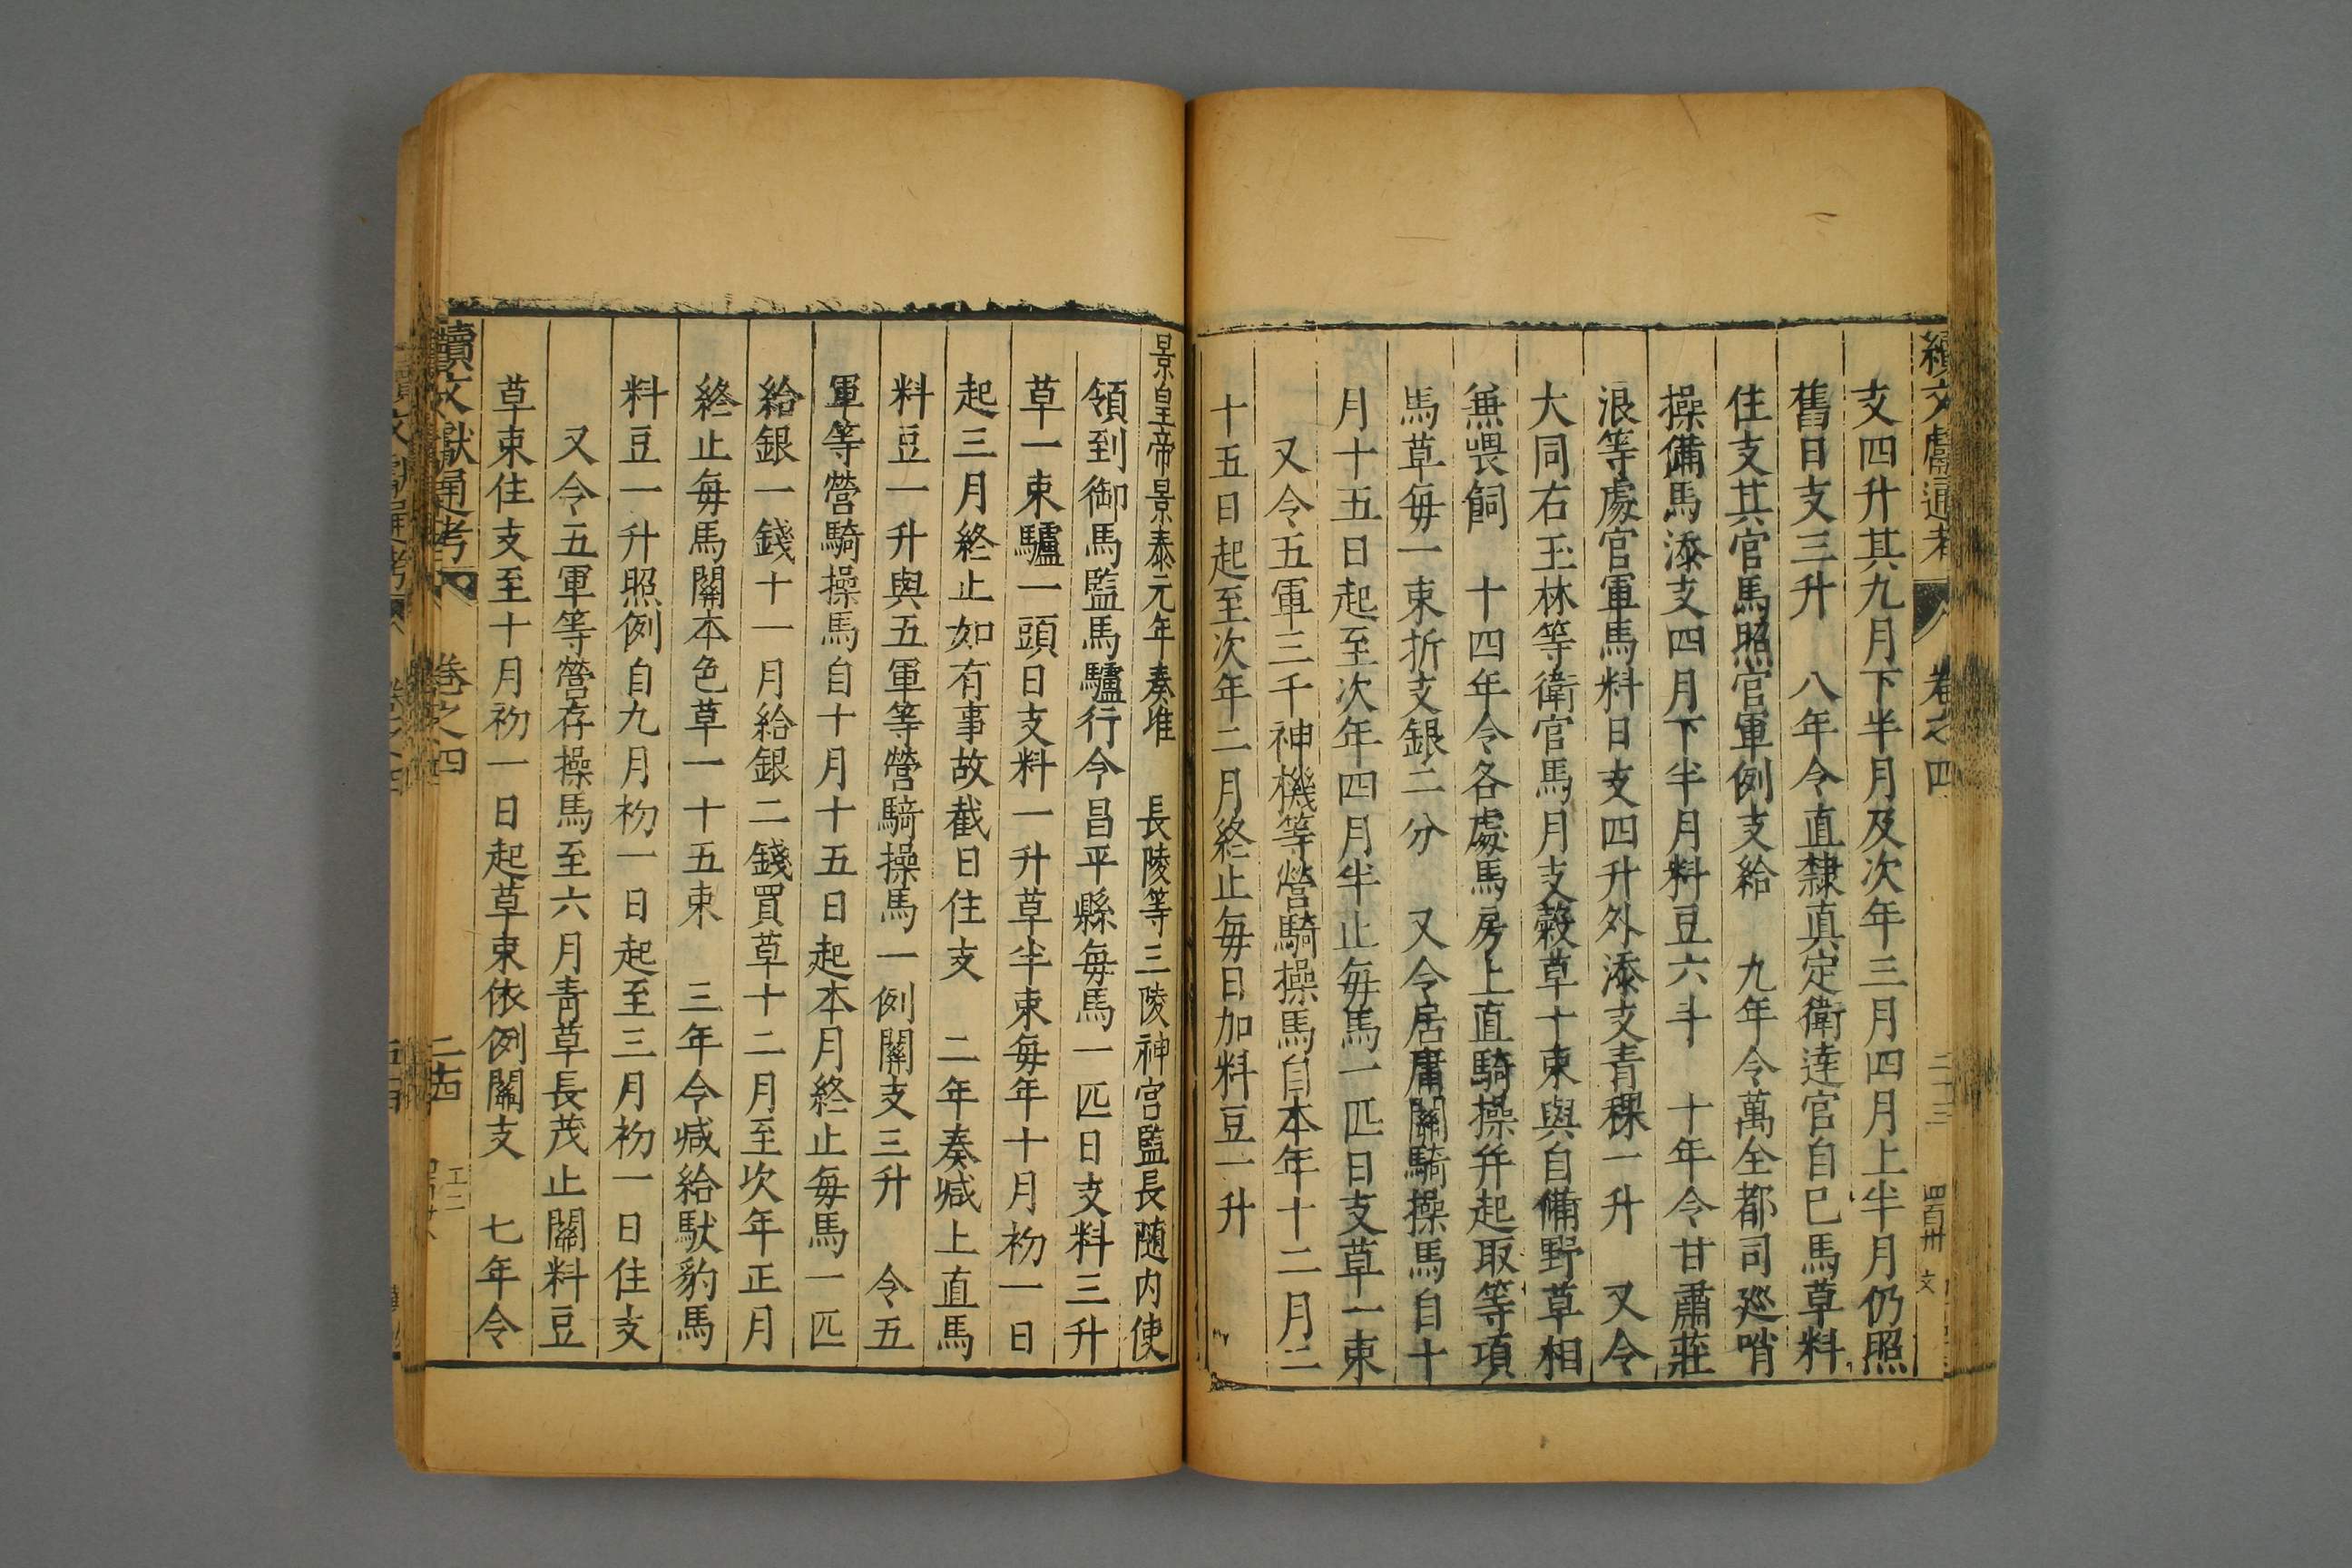 續文獻通考 卷之四 二十三 四百卅 文
支四升其九月下半月及次年三月四月上半月仍照
舊日支三升 八年令直隸真定衛達官自巳馬草料
住支其官馬照官軍例支給 九年令萬全都司廵哨
操備馬添支四月下半月料豆六斗 十年令甘肅莊
浪等處官軍馬料日支四升外添支青稞一升 又令
大同右玉林等衛官馬月支穀草十束與自備野草相
無喂飼 十四年令各處馬房上直騎操幷起取等項
馬草每一束折支銀二分 又令居庸關騎操馬自十
月十五日起至次年四月半止每馬一匹日支草一束
又令五軍三千神機等營騎操馬自本年十二月二
十五日起至次年二月終止每日加料豆一升
景皇帝景泰元年奏准 長陵等三陵神宮監長随内使
領到御馬監馬驢行令昌平縣每馬一匹日支料三升
草一束驢一頭日支料一升草半束每年十月初一日
起三月終止如有事故截日住支 二年奏减上直馬
料豆一升與五軍等營騎操馬一例關支三升 令五
軍等營騎操馬自十月十五日起本月終止每馬一匹
給銀一錢十一月給銀二錢買草十二月至次年正月
終止每馬關本色草一十五束 三年令减給馱豹馬
料豆一升照例自九月初一日起至三月初一日住支
又令五軍等營存操馬至六月青草長茂止關料豆
草束住支至十月初一日起草束依例關支 七年令
續文獻通考 卷之四